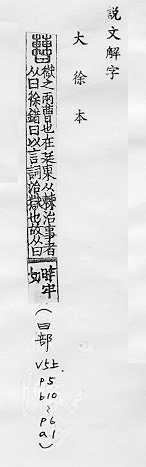 説文解字
大徐本
獄之兩曹也在廷東从㯥治事者
从曰徐鍇曰以言詞治獄也故从曰
時牢
切
(曰部
V5上
p5
b10
~
p6
a1)